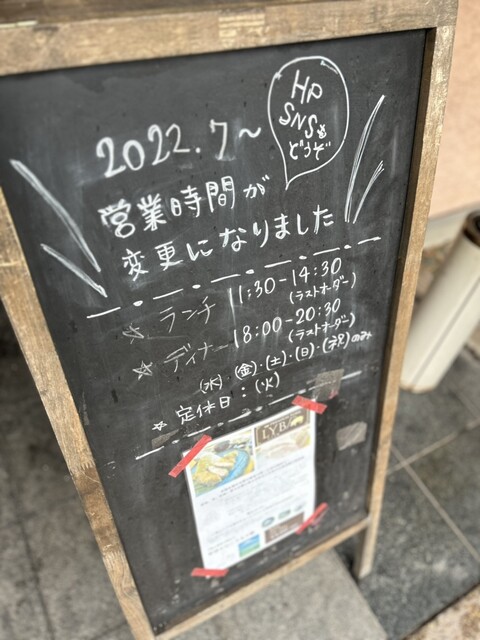 HP
SNSも
どうぞ
2022.7～
営業時間が
変更になりました
☆ ランチ 11:30-14:30
(ラストオーダー)
☆ ディナー 18:00-20:30
(ラストオーダー)
(水)・(金)・(土)・(日)・(祝)のみ
☆ 定休日:(火)